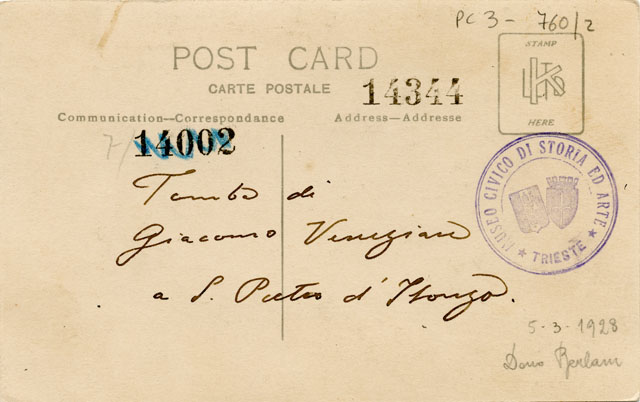 PC 3 - 760/2
POST CARD
CARTE POSTALE
STAMP
HERE
14344
Communication—Correspondance
Address—Addresse
7/
14002
Tomba di
Giacomo Venezian
a S. Pietro d'Isonzo.
MUSEO CIVICO DI STORIA ED ARTE
★ TRIESTE ★
5-3-1928
Dono Berlam